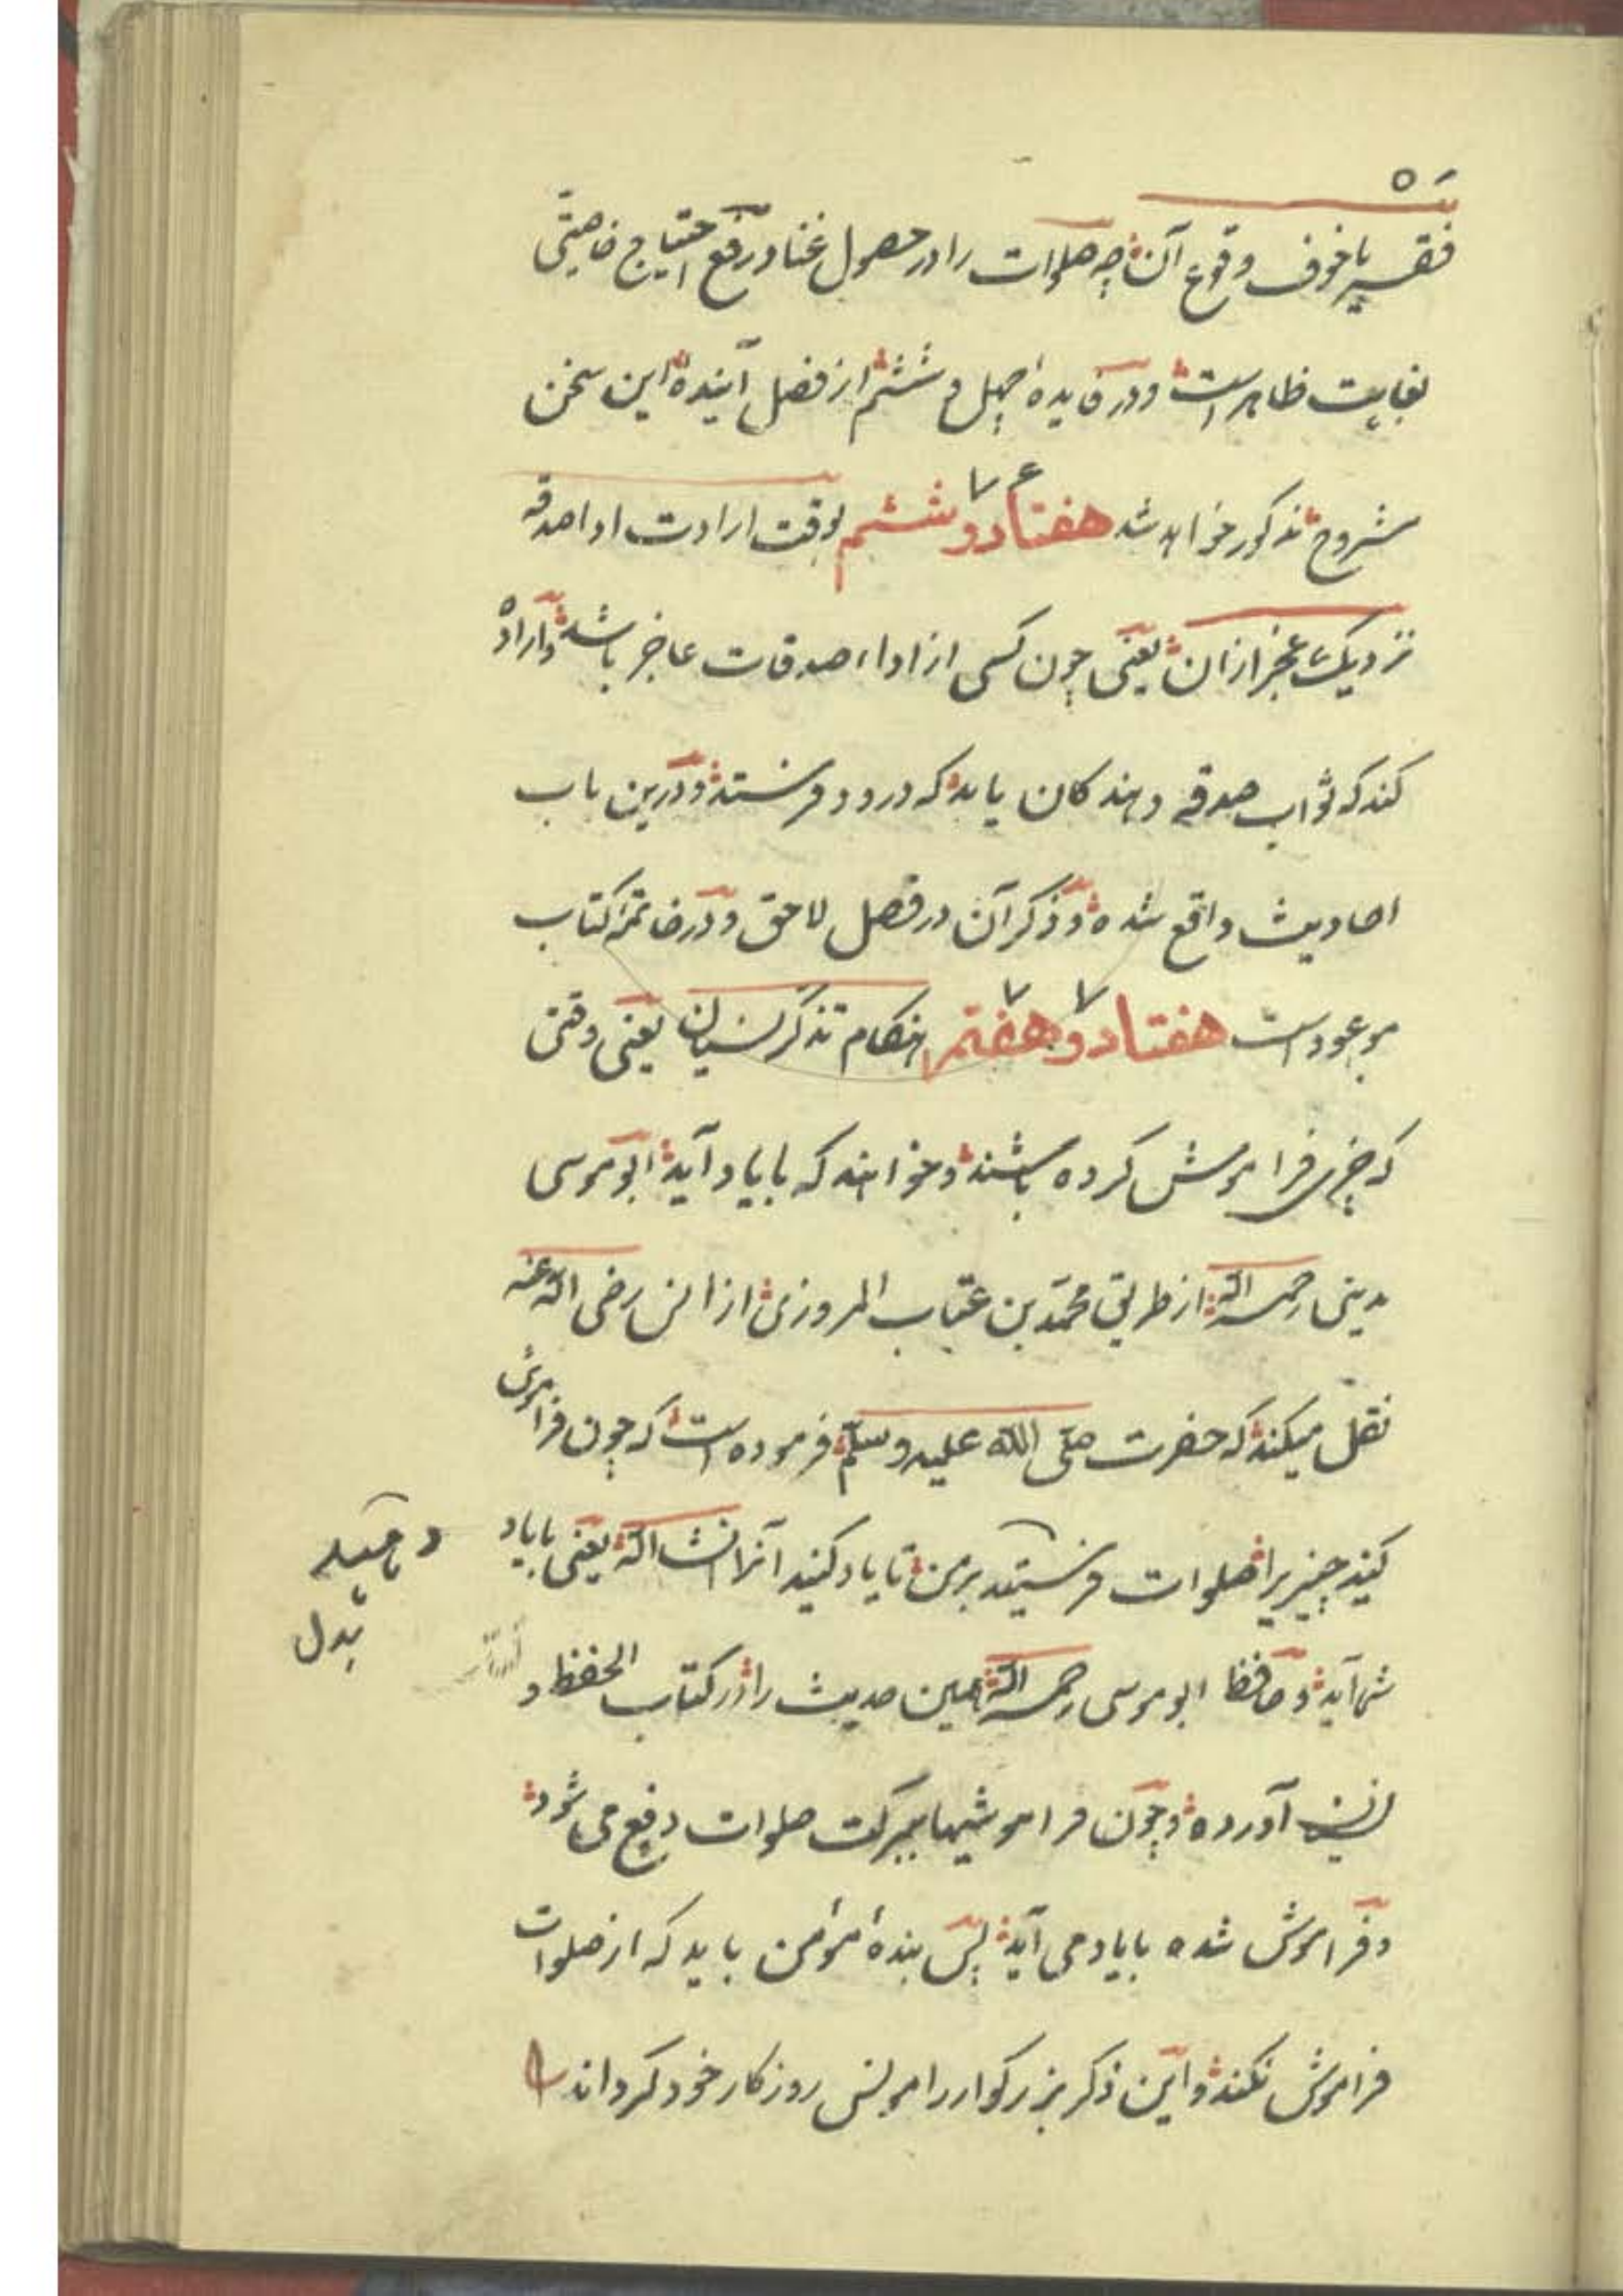 فقر یا خوف وقوع آن چه صلوات را در حصول غنا و رفع احتیاج خاصیتی
بغایت ظاهر است و در فایدهٔ چهل و ششم از فصل آینده این سخن
مشروح مذکور خواهد شد هفتاد و ششم ۷۶ بوقت ارادت ادا صدقه
نزدیک عجز از ان یعنی چون کسی از اداء صدقات عاجز باشد و اراده
کند که ثواب صدقه دهندکان یابد که درود فرستد و درین باب
احادیث واقع شده و ذکر آن در فصل لاحق و در خاتمهٔ کتاب
موعود است هفتاد و هفتم ۷۷ هنکام تذکر نسیان یعنی وقتی
که چیزی فراموش کرده باشند و خواهند که با یاد آید ابو موسی
مدینی رحمه الله از طریق محمد بن عتاب المروزی از انس رضی الله عنه
نقل میکند که حضرت صلی الله علیه و سلم فرموده است که چون فراموش
کنید چیزیرا صلوات فرستید بر من تا یاد کنید آنرا انشاالله یعنی با یاد
شما آید و حافظ ابو موسی رحمه الله همین حدیث را در کتاب الحفظ و
النسیان آورده و چون فراموشیها ببرکت صلوات دفع می شود
و فراموش شده با یاد می آید پس بندهٔ مؤمن باید که از صلوات
فراموش نکند و این ذکر بزرکوار را مونس روزکار خود کرداند
بدل